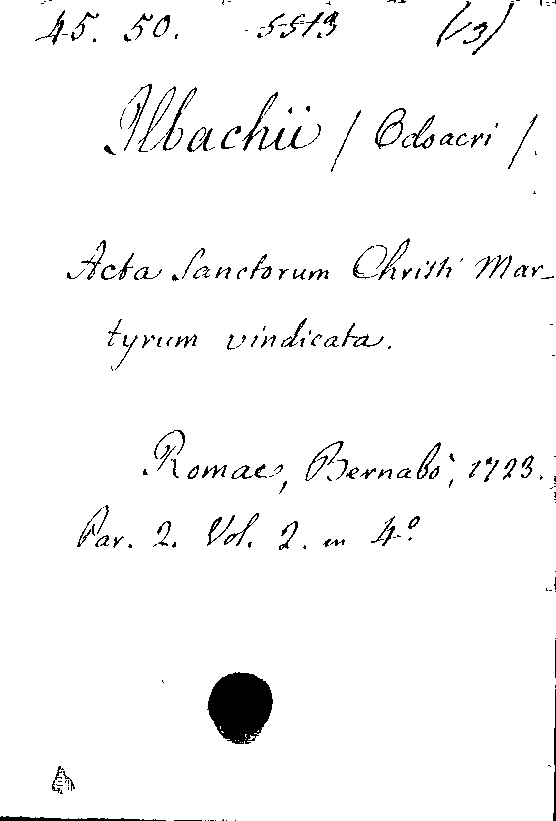 45. 50. 5513 (13)
Ilbachii / Odoacri /.
Acta Sanctorum Christi Mar-
tyrum vindicata.
Romae, Bernabò, 1723.
Par. 2. Vol. 2. in 4º